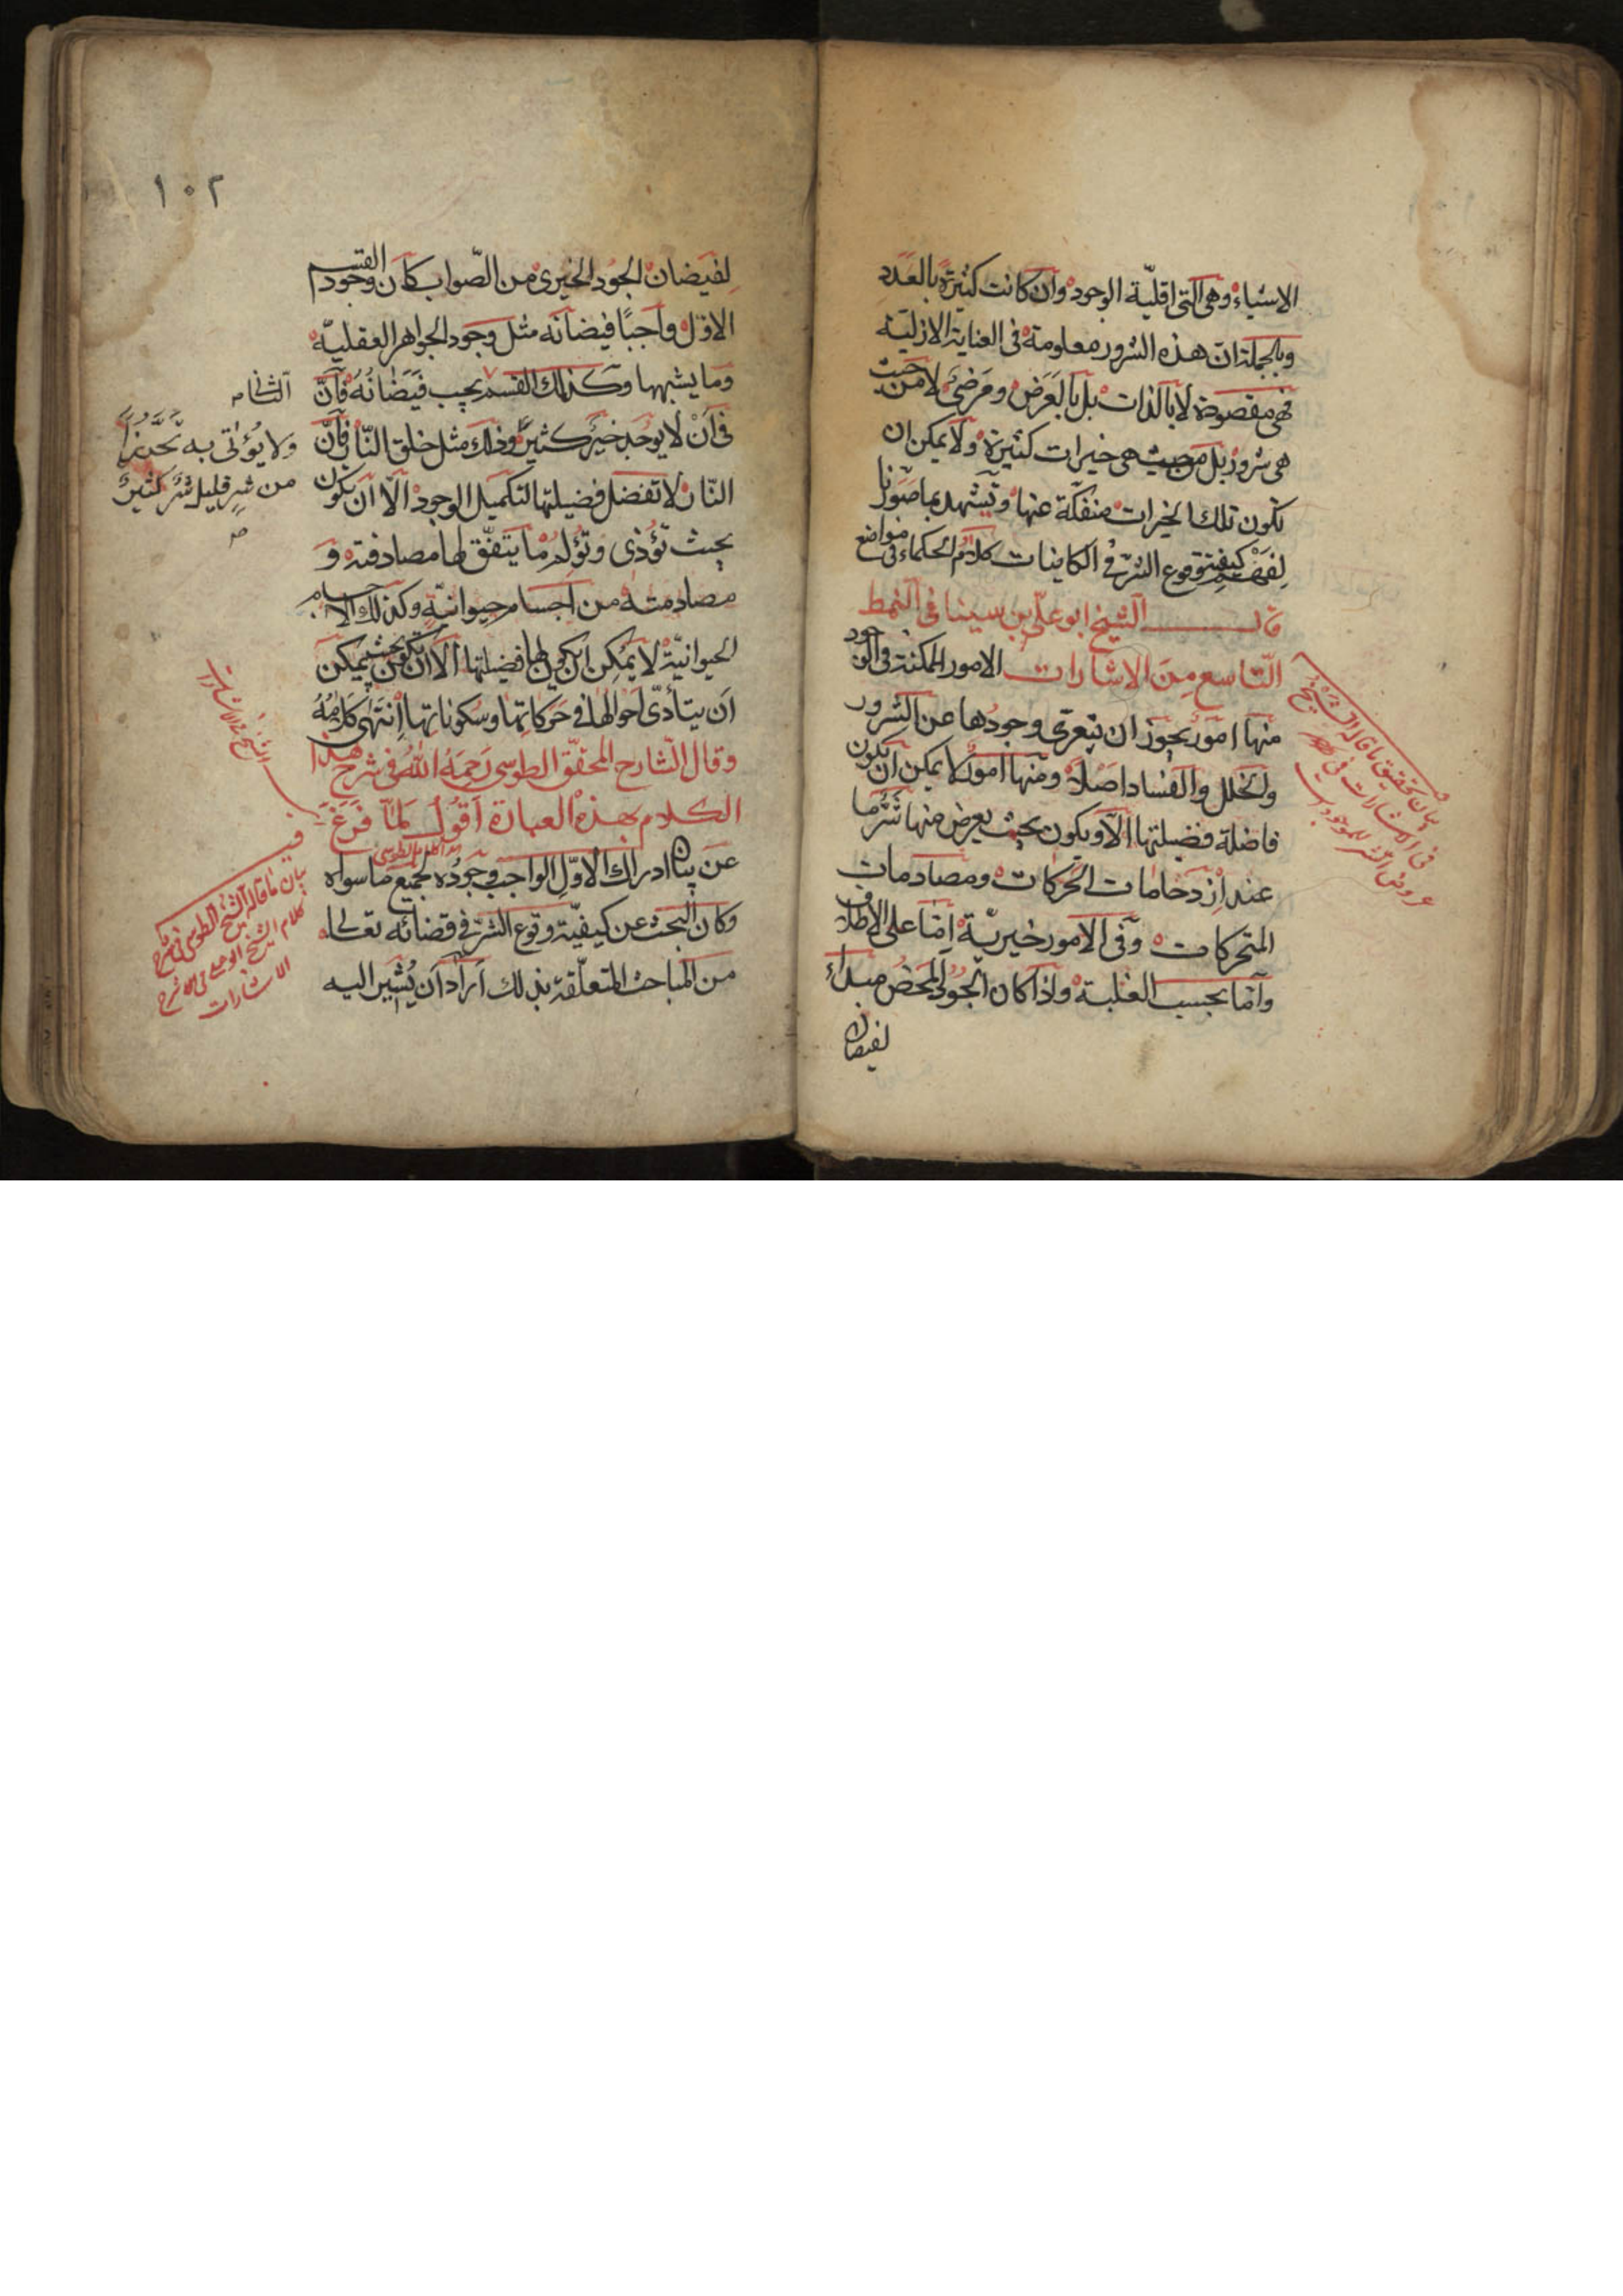 الاشياء وهى التى اقليّة الوجود وان كانت كثيرة بالعدد
وبالجملة ان هذه الشرور معلومة فى العناية الازليّة
فهى مقصودة لا بالذات بل بالعَرَض ومرضىّ لا من حيث
هى شرور بل من حيث هى خيرات كثيرة ولا يمكن ان
تكون تلك الخيرات منفكّة عنها وتشهد بما صوّرنا
كيفيّة وقوع الشرّ فى الكاينات كلام الحكماء فى مواضع
قال الشيخ ابو علىّ بن سينا فى النمط
التّاسع مِنَ الاشارات الامور الممكنة فى الوجود
منها امورٌ يجوز ان يتعرّى وجودها عن الشرور
والخلل والفساد اصلاً ومنها امور لا يمكن ان تكون
فاضلة فضيلتها الّا ويكون بحيث يعرض منها شرّ ما
عند اِزدحامات الحركات ومصادمات
المتحركات وفى الامور خيريّة اِمّا على الاطلاق
وامّا بحسب الغلبة واذا كان الجود المحض مبداء
لفيضان
بيان تحقيق ما قاله الشيخ
فى الاشارات فى
عروض الشر للموجودات
١٠٢
لِفيَضان الجود الخيرى من الصّواب كان وجود القسم
الاوّل واجبًا فيضانه مثل وجود الجواهر العقليّة
وما يشبهها وكذلك القسم يجب فَيَضانُهُ فانّ
فى اَنْ لا يوجد خيرٌ كثيرٌ وذلك مثل خلق النّار فانّ
النّار لا تفضل فضيلتها لتكميل الوجود الّا ان تكون
بحيث تؤذى وتؤلم ما يتفّق لها مصادفته وَ
مصادمته من اجسام حيوانيّةٍ وكذلك الاجسام
الحيوانيّة لا يمكِن ان يكون لها فضيلتها الّا ان تكون بحيث يمكن
اَن يتأدّى احوالها فى حَركاتها وسكوناتها اِنتَهٰى كلامُهُ
وقال الشّارح المحقّق الطوسى رَحِمَهُ اللّٰهُ فى شرح هذا
الكلام بهذه العبارة اَقُولُ لمّا فَرَغَ
عَن بيان ادراك الاوّلِ الواجب وجودُه لجميع ما سواه
وكان البحث عن كيفيّة وقوع الشرّ فى قضائه تعالى
من المباحث المتعلّقة بذلك اَرادَ اَن يُشير اليه
الثّانى
ولا يُؤتٰى به تحرّزاً
من شرٍ قليل شرٌ كثيرٌ
صح
الشيخ فى الاشارات
بيان ما قاله الشيخ الطوسى فى شرح
كلام الشيخ ابو على فى
الاشارات